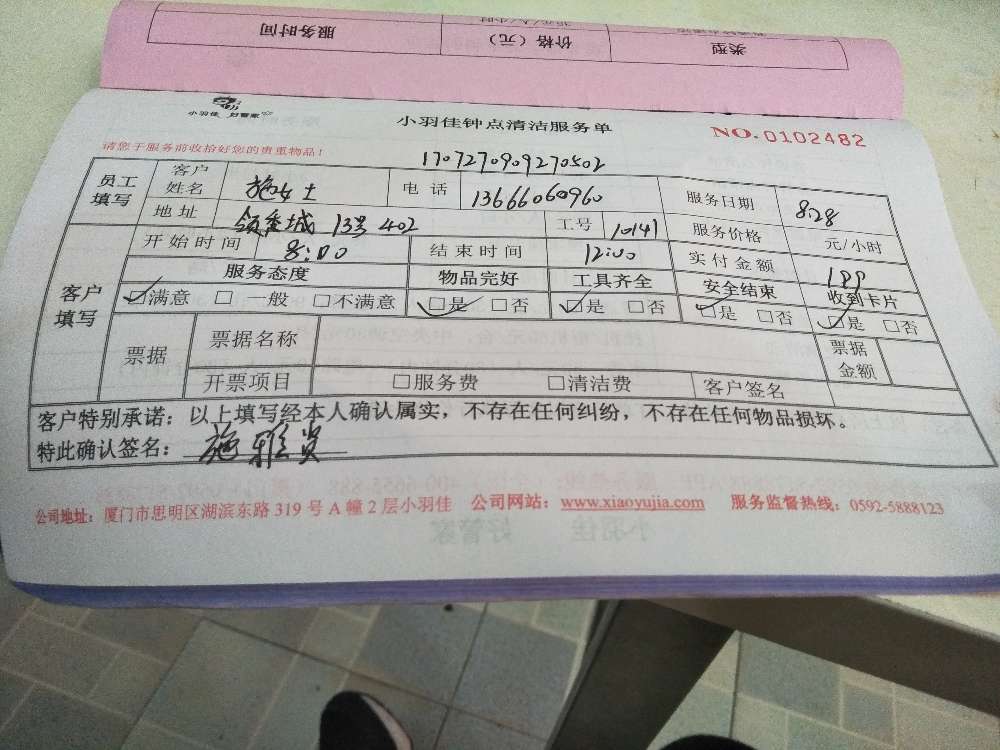 类型 价格（元） 服务时间
小羽佳 好管家
小羽佳钟点清洁服务单
NO.0102482
请您于服务前收拾好您的贵重物品！
1707270909270502
员工填写 客户姓名 施女士 电话 13666060960 服务日期 8.28
地址 领秀城 13号 402 工号 10141 服务价格 元/小时
客户填写 开始时间 8:00 结束时间 12:00 实付金额 199
服务态度 物品完好 工具齐全 安全结束 收到卡片
☑满意 □一般 □不满意 ☑是 □否 ☑是 □否 ☑是 □否 ☑是 □否
票据 票据名称 票据金额
开票项目 □服务费 □清洁费 客户签名
客户特别承诺：以上填写经本人确认属实，不存在任何纠纷，不存在任何物品损坏。
特此确认签名：施雅贤
公司地址：厦门市思明区湖滨东路 319 号 A 幢 2 层小羽佳 公司网站：www.xiaoyujia.com 服务监督热线：0592-5888123